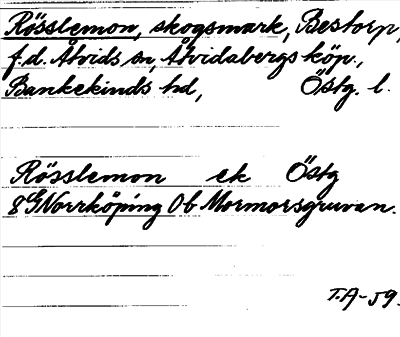 Rösslemon, skogsmark, Bestorp,
f.d. Åtvids sn, Åtvidabergs köp.,
Bankekinds hd, Östg. l.
Rösslemon ek Östg
8G Norrköping 0b Mormorsgruvan.
T.A-59.